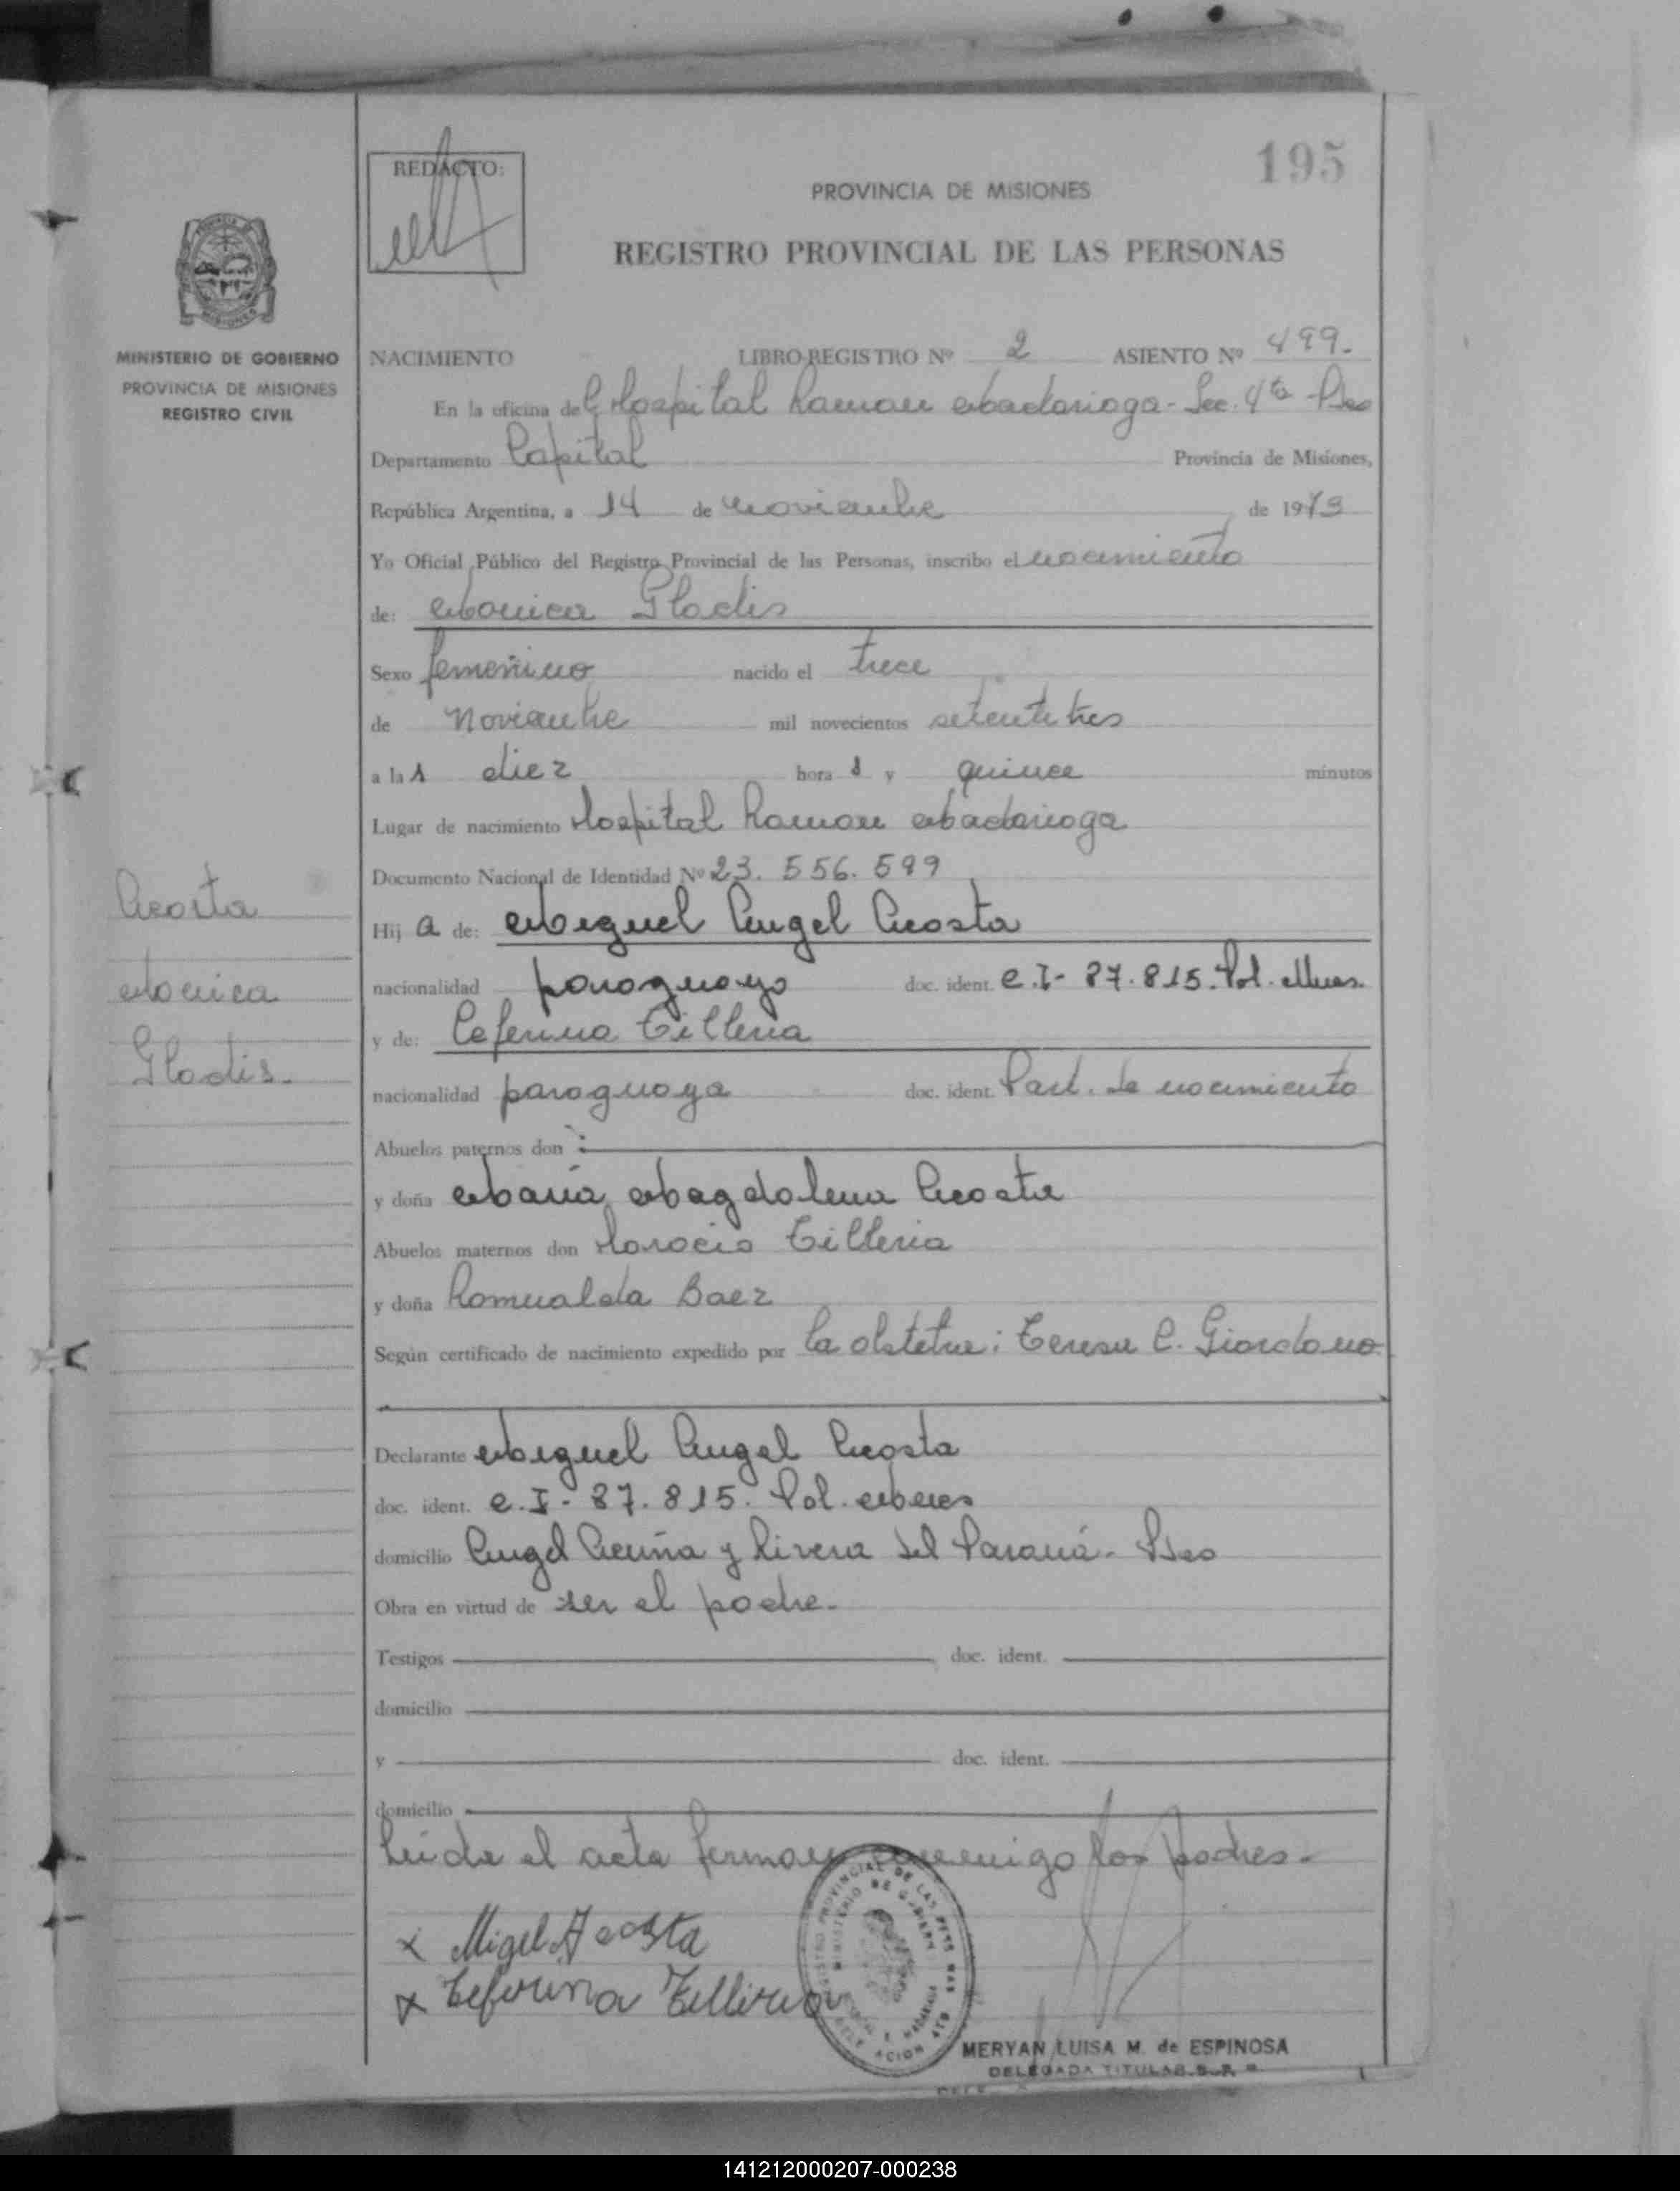 195
REDACTO:
PROVINCIA DE MISIONES
REGISTRO PROVINCIAL DE LAS PERSONAS
MINISTERIO DE GOBIERNO
PROVINCIA DE MISIONES
REGISTRO CIVIL
NACIMIENTO LIBRO REGISTRO Nº 2 ASIENTO Nº 499.
En la oficina del Hospital Ramon Madariaga - Sec. 4ta - Pdas
Departamento Capital Provincia de Misiones,
República Argentina, a 14 de noviembre de 1973
Yo Oficial Público del Registro Provincial de las Personas, inscribo el nacimiento
de: Monica Gladis
Sexo femenino nacido el trece
de Noviembre mil novecientos setenta tres
a las diez horas y quince minutos
Lugar de nacimiento Hospital Ramon Madariaga
Documento Nacional de Identidad Nº 23.556.599
Acosta
Monica
Gladis.
Hija de: Miguel Angel Acosta
nacionalidad paraguayo doc. ident. C.I- 87.815. Pol. Mnes.
y de: Ceferina Tilleria
nacionalidad paraguaya doc. ident. Part. de nacimiento
Abuelos paternos don :
y doña María Magdalena Acosta
Abuelos maternos don Horacio Tilleria
y doña Romualda Baez
Según certificado de nacimiento expedido por la obstetra: Teresa C. Giordano
Declarante Miguel Angel Acosta
doc. ident. C.I- 87.815. Pol. Mnes
domicilio Angel Acuña y Rivera del Paraná - Pdas
Obra en virtud de ser el padre.
Testigos doc. ident.
domicilio
y doc. ident.
domicilio
Leída el acta firman conmigo los padres.
x Migel Acosta
x Ceferina Tilleria
MERYAN LUISA M. de ESPINOSA
DELEGADA TITULAR
141212000207-000238